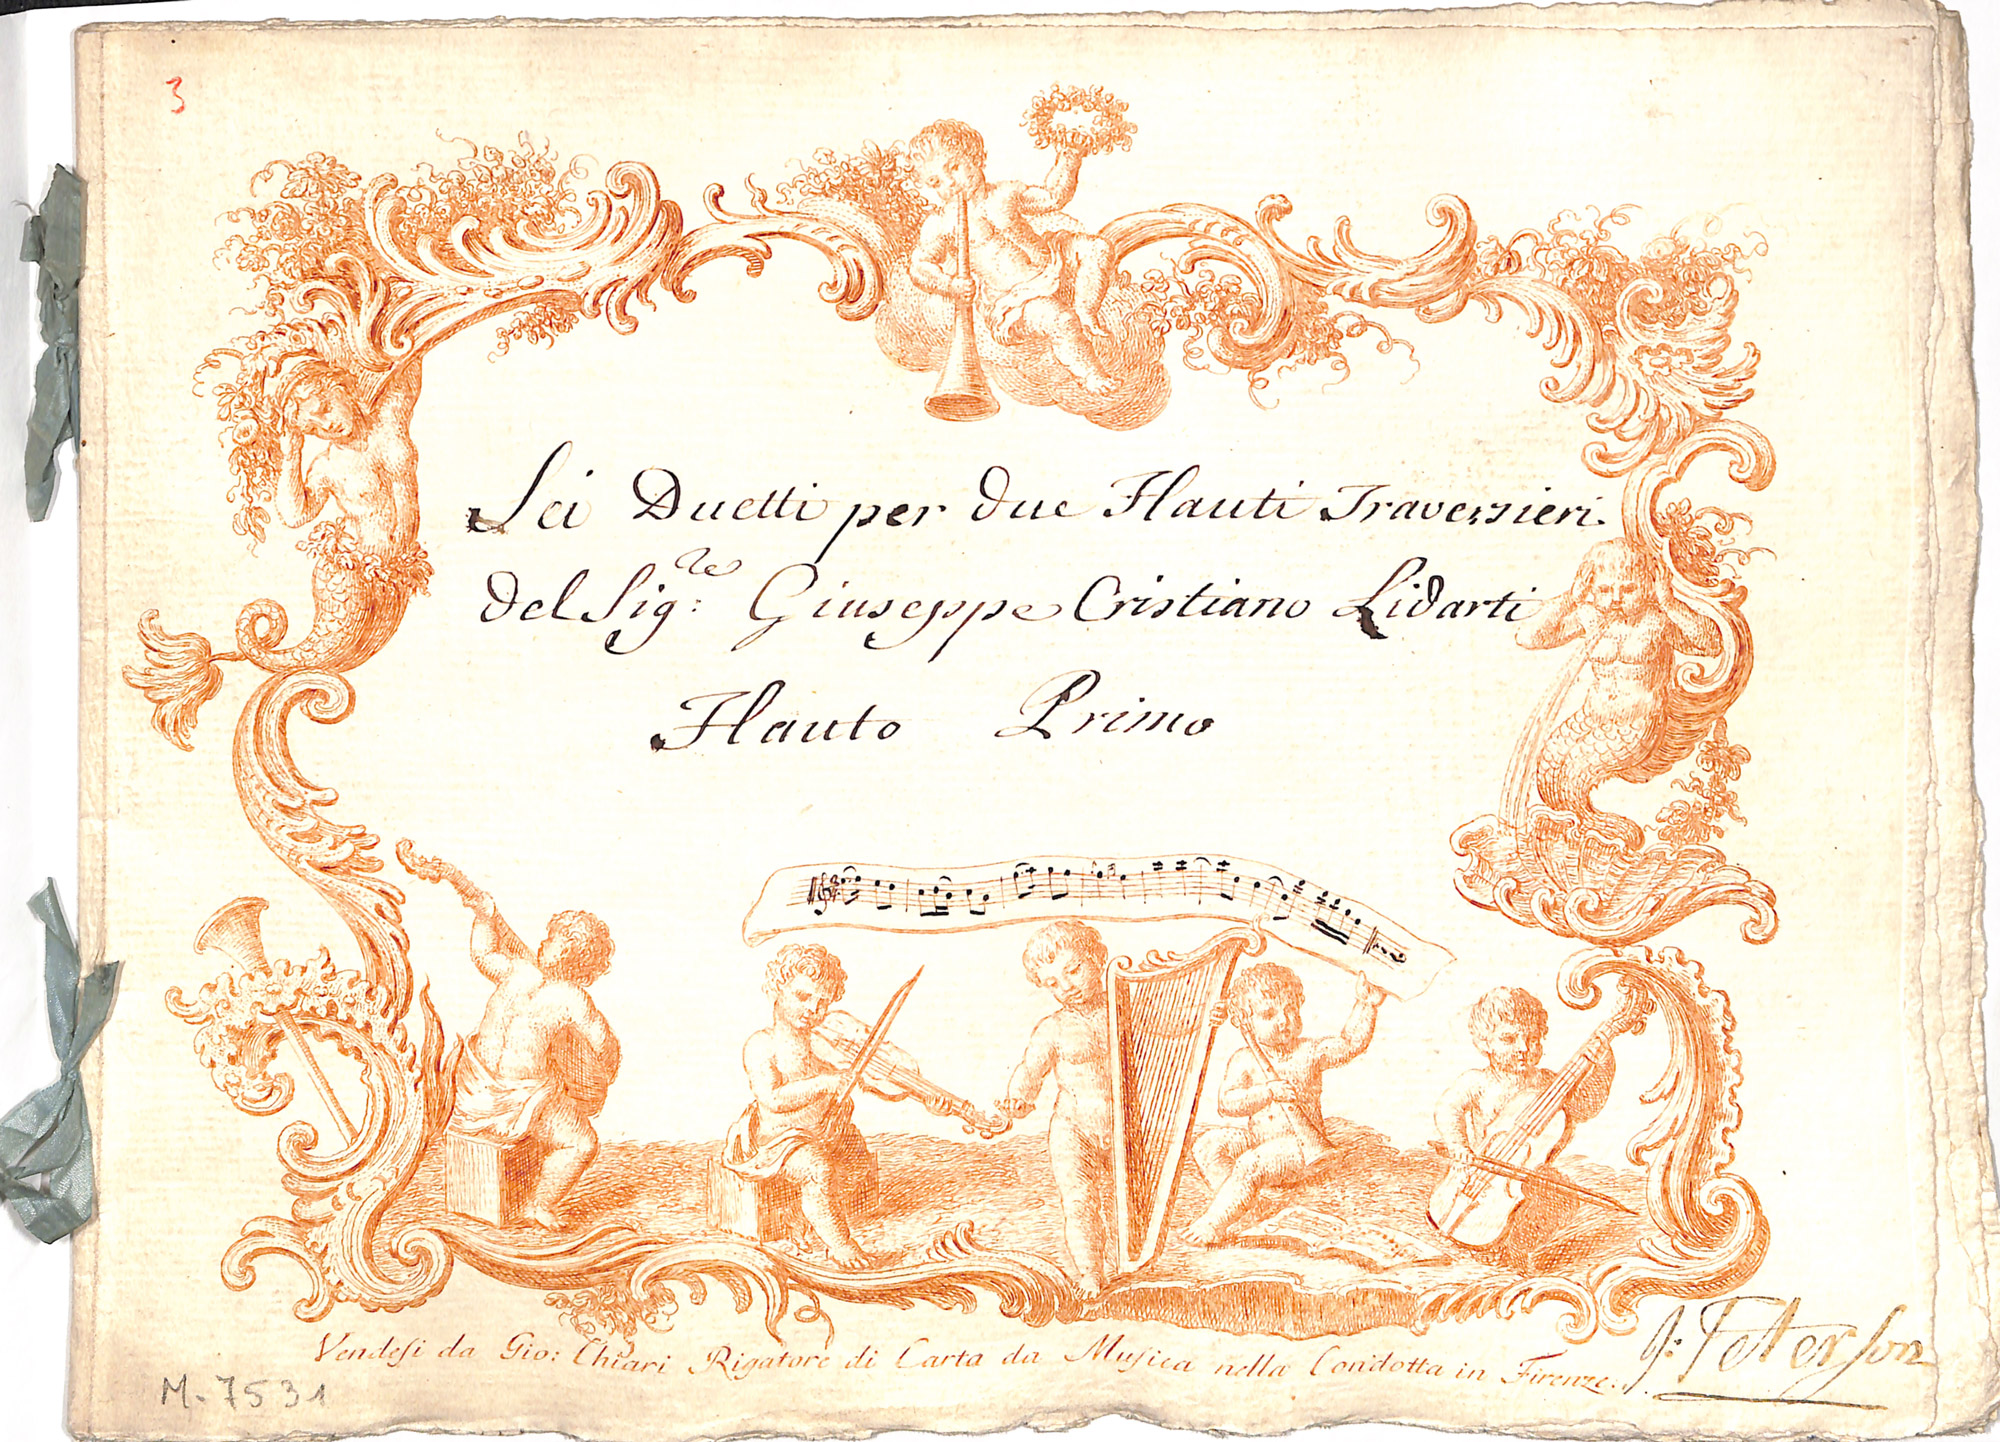 3
Sei Duetti per due Flauti Traversieri.
del Sig:re Giuseppe Cristiano Lidarti
Flauto Primo
Vendesi da Gio: Chiari Rigatore di Carta da Musica nella Condotta in Firenze.
J: Peterson
M-7531